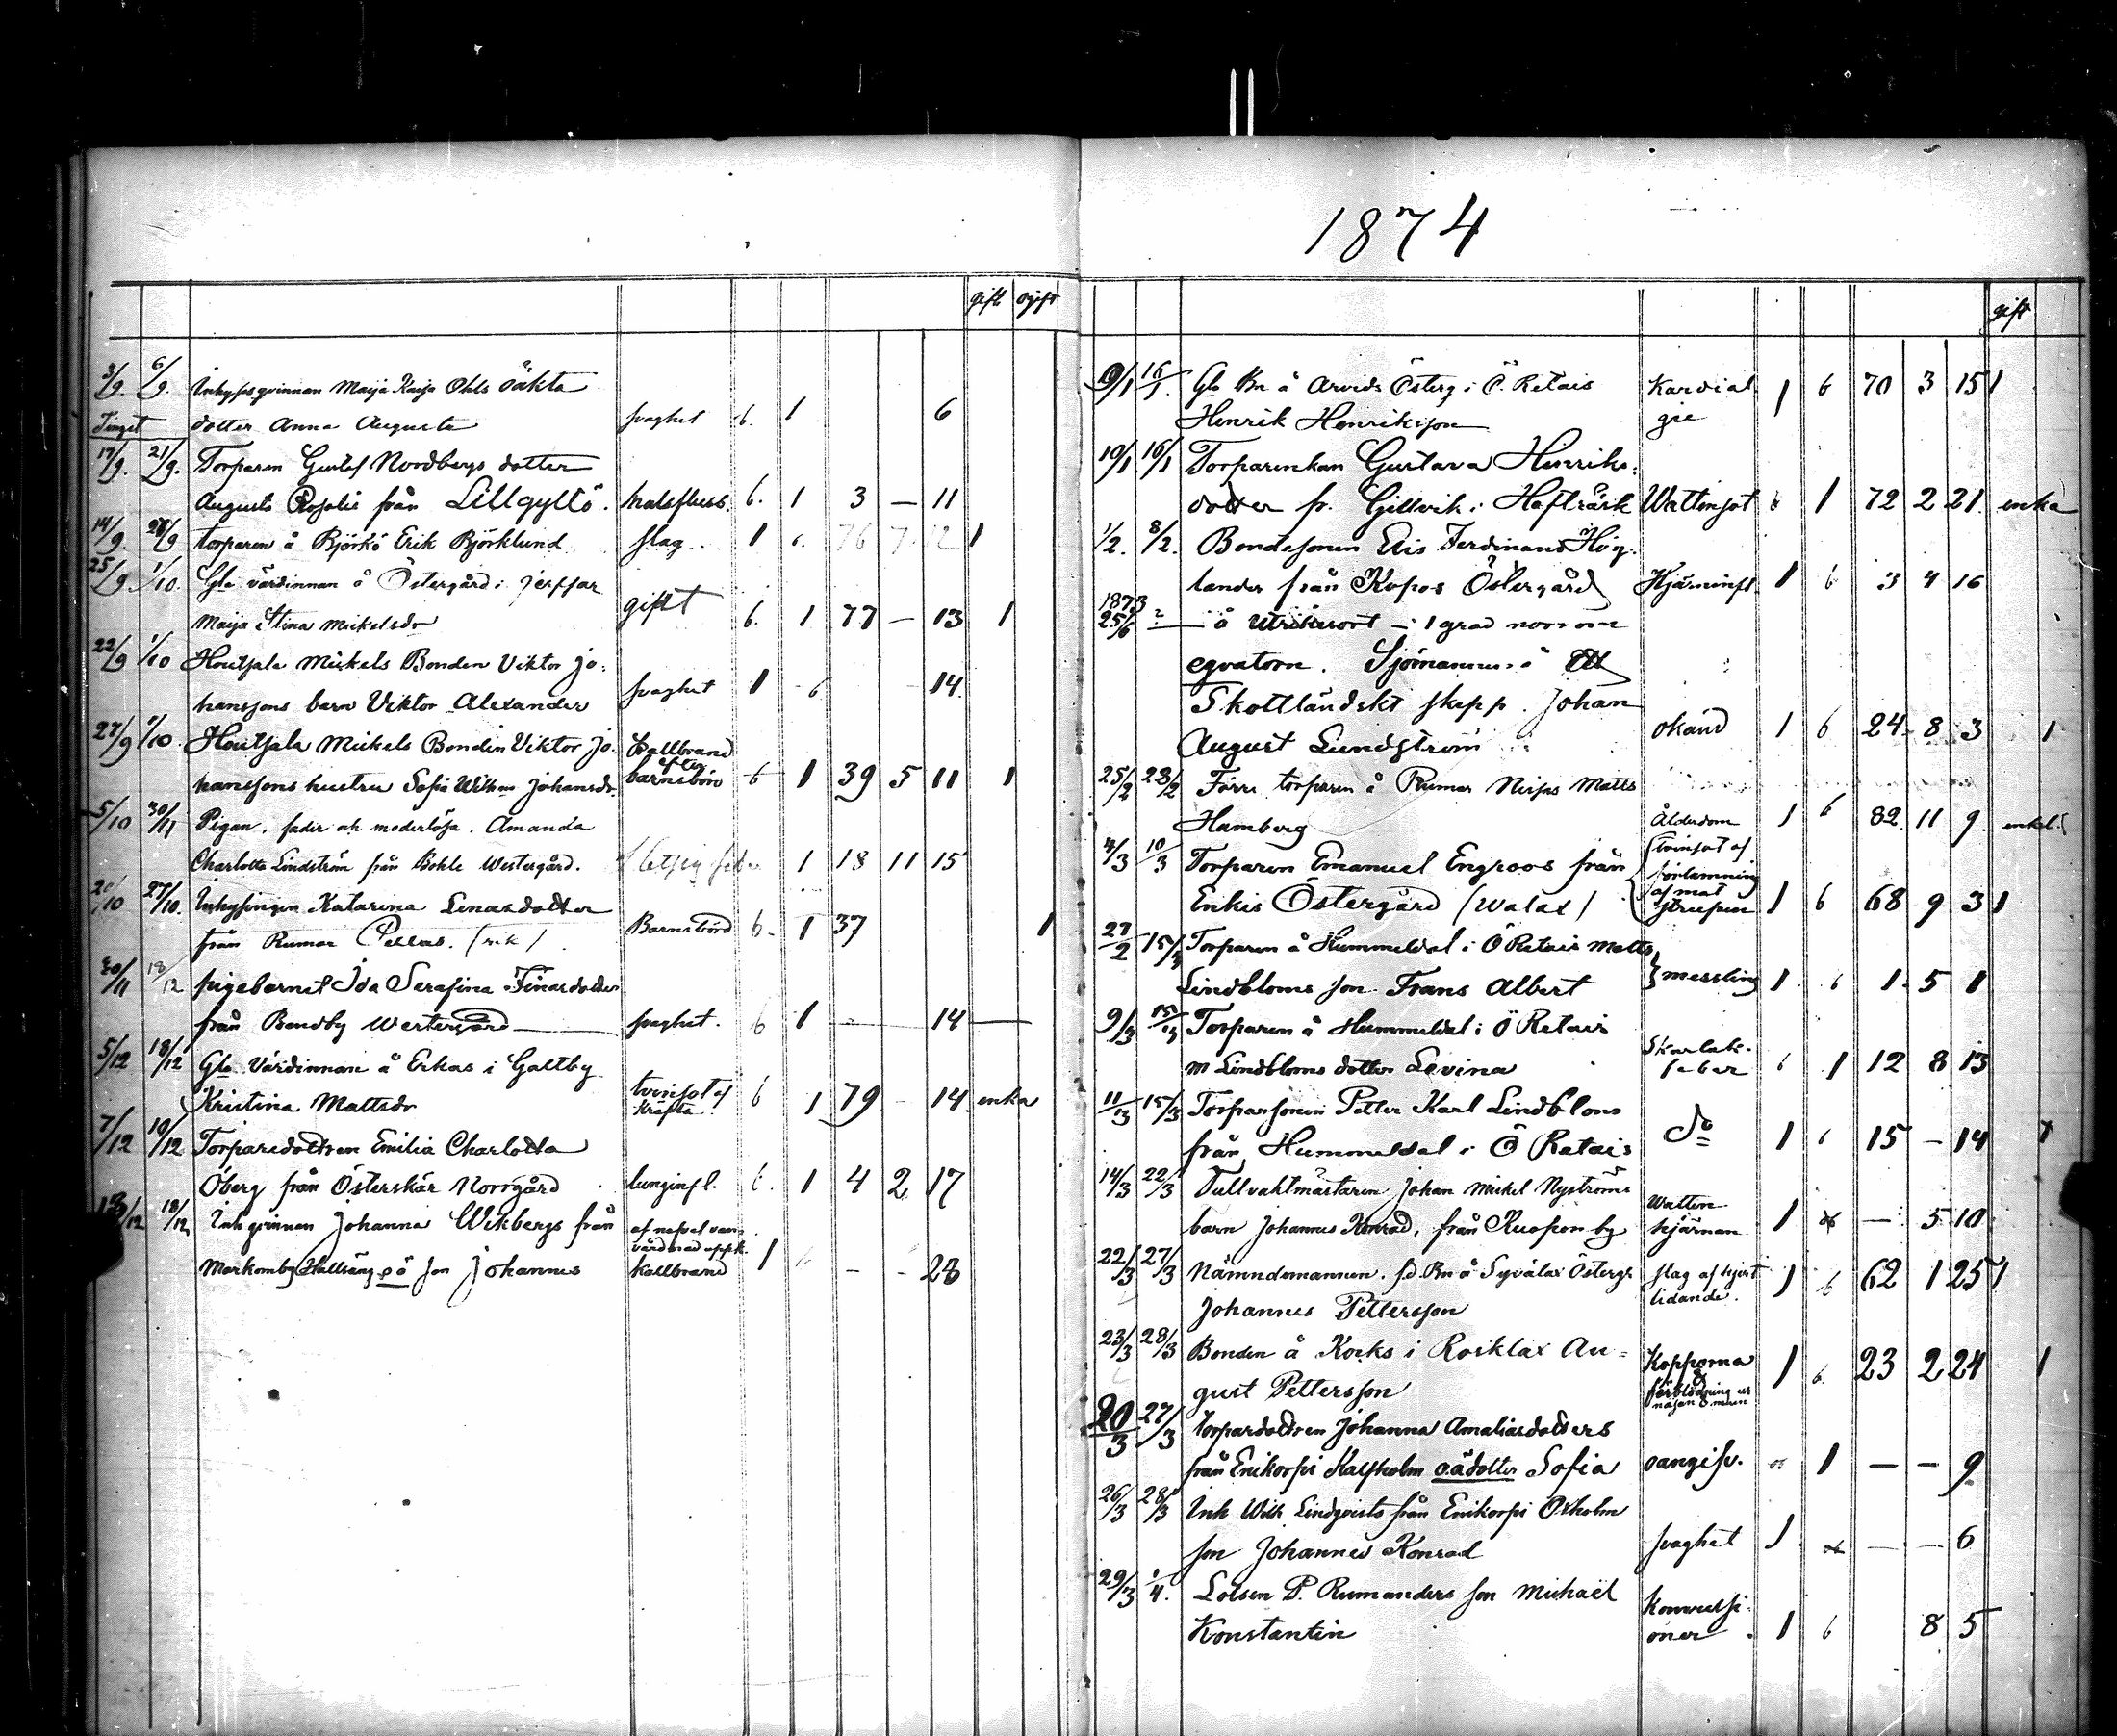 gift ogift
3/9. 6/9. Inhyses qvinnan Maija Kaija Ohls oäkta
Tinget dotter Anna Augusta svaghet 6. 1 6
17/9. 21/9. Torparen Gustaf Nordbergs dotter
Augusta Rosalie från Lillgyltö. halsfluss. 6. 1 3 — 11
14/9. 20/9 torparen å Björkö Erik Björklund slag.. 1 6. 76 7. 12 1
25/9. 1/10. Gla värdinnan å Östergård i Jerssar
Maija Stina Mickelsdr gikt 6. 1 77 — 13 1
22/9 1/10 Houtsala Mickels Bonden Viktor Jo:
hanssons barn Viktor Alexander svaghet 1 6 14.
27/9 1/10. Houtsala Mickels Bonden Viktor Jo. Kallbrand
hanssons hustru Sofia Wilhm Johansdr. efter barnsbörd 6 1 39 5 11 1
5/10 30/11 Pigan, fader och moderlösa. Amanda
Charlotta Lindström från Bohle Westergård. 1 18 11 15
20/10 27/10. Inhysingen Katarina Lenasdotter
från Rumar Pellas. Barnsbörd 6. 1 37 1
30/11 18/12 pigebarnet Ida Serafina Finasdotter
från Bendby Westergård — svaghet. 6 1 — 14 —
5/12 18/12 Gla Värdinnan å Erkas i Galtby
Kristina Mattsdr tvinsot af kräfta. 6 1 79 - 14. enka
7/12 10/12 Torparedottren Emilia Charlotta
Öberg från Österskär Norrgård lunginfl. 6. 1 4 2 17
13/12 18/12 Inh qvinnan Johanna Wikbergs från af nafvel van
vårdnad uppk.
Markomby Hallsäng oä son Johannes kallbrand 1 — - 28
1874
gift
9/1 16/1. Gla Bn å Arvids Österg i Ö. Retais Kardial
Henrik Henriksson gie 1 6 70 3 15 1
10/1 16/1 Torparenkan Gustava Henriks:
dotter fr. Gillvik i Hafträsk Wattensot 6 1 72 2 21. enka
1/2. 8/2. Bondesonen Elis Ferdinand Hög-
lander från Kopos Östergård Hjärninfl. 1 6 3 4 16
1873
25/6 ? — å Utrikesort — i 1 grad norr om
eqvatorn. Sjömannen å Ett
Skottländskt skepp. Johan
August Lundström okänd 1 6 24 8 3 1
25/2 28/2 Förre torparen å Rumar Nisjos Matts
Hamberg Ålderdom 1 6 82. 11 9. enkel.
4/3 10/3 Torparen Emanuel Engroos från Tvinsot af
förlamning
Erikis Östergård (Walax) af mat
strupen 1 6 68 9 3 1
27/2 15/3 Torparen å Hummeldal i Ö Retais Matts
Lindbloms son Frans Albert messling 1. 6 1. 5 1
9/3 15/3 Torparen å Hummeldal i Ö Retais
M Lindbloms dotter Levina Skarlak.
feber 6 1 12 8 13
11/3 15/3 Torparsonen Petter Karl Lindblom
från Hummeldal i Ö Retais do 1 6 15 — 14 1
14/3 22/3 Tullvaktmästaren Johan Mickel Nyströms Watten
barn Johannes Konrad, från Ruopon by hjärnan 1 6 — 5 10
22/3 27/3 Nämndemannen. f.d. Bn å Syvälax Östergr slag af hjert
Johannes Pettersson lidande. 1 6 62 1 25 1
23/3 28/3 Bonden å Korks i Rosklax Au=
gust Pettersson Kopporna
&
förblödning ur
näsan o mun 1 6. 23 2 24 1
20/3 27/3 torpardottren Johanna Amaliasdotters
från Enikorpi Kalfholm oädotter Sofia oangifv. 1 — — 9
26/3 28/3 Inh Wilh Lindqvists från Enikorpi Oxholm
son Johannes Konrad svaghet 1 6 — — 6
29/3 1/4. Lotsen P. Rumanders son Michaël
Konstantin Konvulsi
oner 1 6 8 5